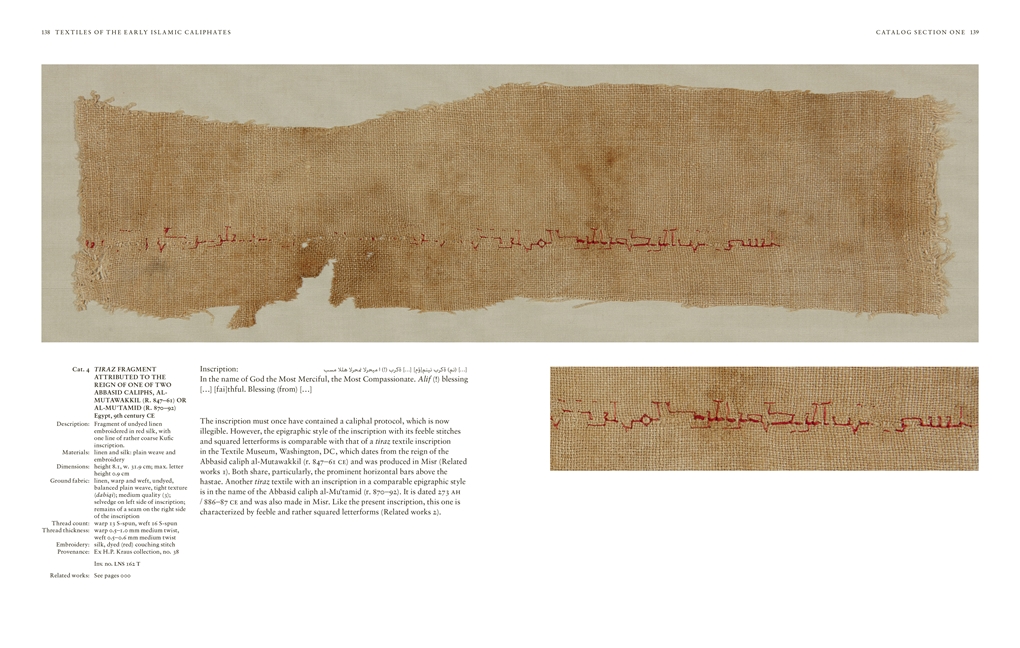 138 TEXTILES OF THE EARLY ISLAMIC CALIPHATES
CATALOG SECTION ONE 139
Cat. 4 TIRAZ FRAGMENT
ATTRIBUTED TO THE
REIGN OF ONE OF TWO
ABBASID CALIPHS, AL-
MUTAWAKKIL (R. 847–61) OR
AL-MU'TAMID (R. 870–92)
Egypt, 9th century CE
Description: Fragment of undyed linen
embroidered in red silk, with
one line of rather coarse Kufic
inscription.
Materials: linen and silk: plain weave and
embroidery
Dimensions: height 8.1, w. 31.9 cm; max. letter
height 0.9 cm
Ground fabric: linen, warp and weft, undyed,
balanced plain weave, tight texture
(dabiqi); medium quality (3);
selvedge on left side of inscription;
remains of a seam on the right side
of the inscription
Thread count: warp 23 S-spun, weft 16 S-spun
Thread thickness: warp 0.5–1.0 mm medium twist,
weft 0.5–0.6 mm medium twist
Embroidery: silk, dyed (red) couching stitch
Provenance: Ex H.P. Kraus collection, no. 38
Inv. no. LNS 162 T
Related works: See pages 000
Inscription:
In the name of God the Most Merciful, the Most Compassionate. Alif (!) blessing
[…] [fai]thful. Blessing (from) […]
The inscription must once have contained a caliphal protocol, which is now
illegible. However, the epigraphic style of the inscription with its feeble stitches
and squared letterforms is comparable with that of a tiraz textile inscription
in the Textile Museum, Washington, DC, which dates from the reign of the
Abbasid caliph al-Mutawakkil (r. 847–61 CE) and was produced in Misr (Related
works 1). Both share, particularly, the prominent horizontal bars above the
hastae. Another tiraz textile with an inscription in a comparable epigraphic style
is in the name of the Abbasid caliph al-Mu'tamid (r. 870–92). It is dated 273 AH
/ 886–87 CE and was also made in Misr. Like the present inscription, this one is
characterized by feeble and rather squared letterforms (Related works 2).